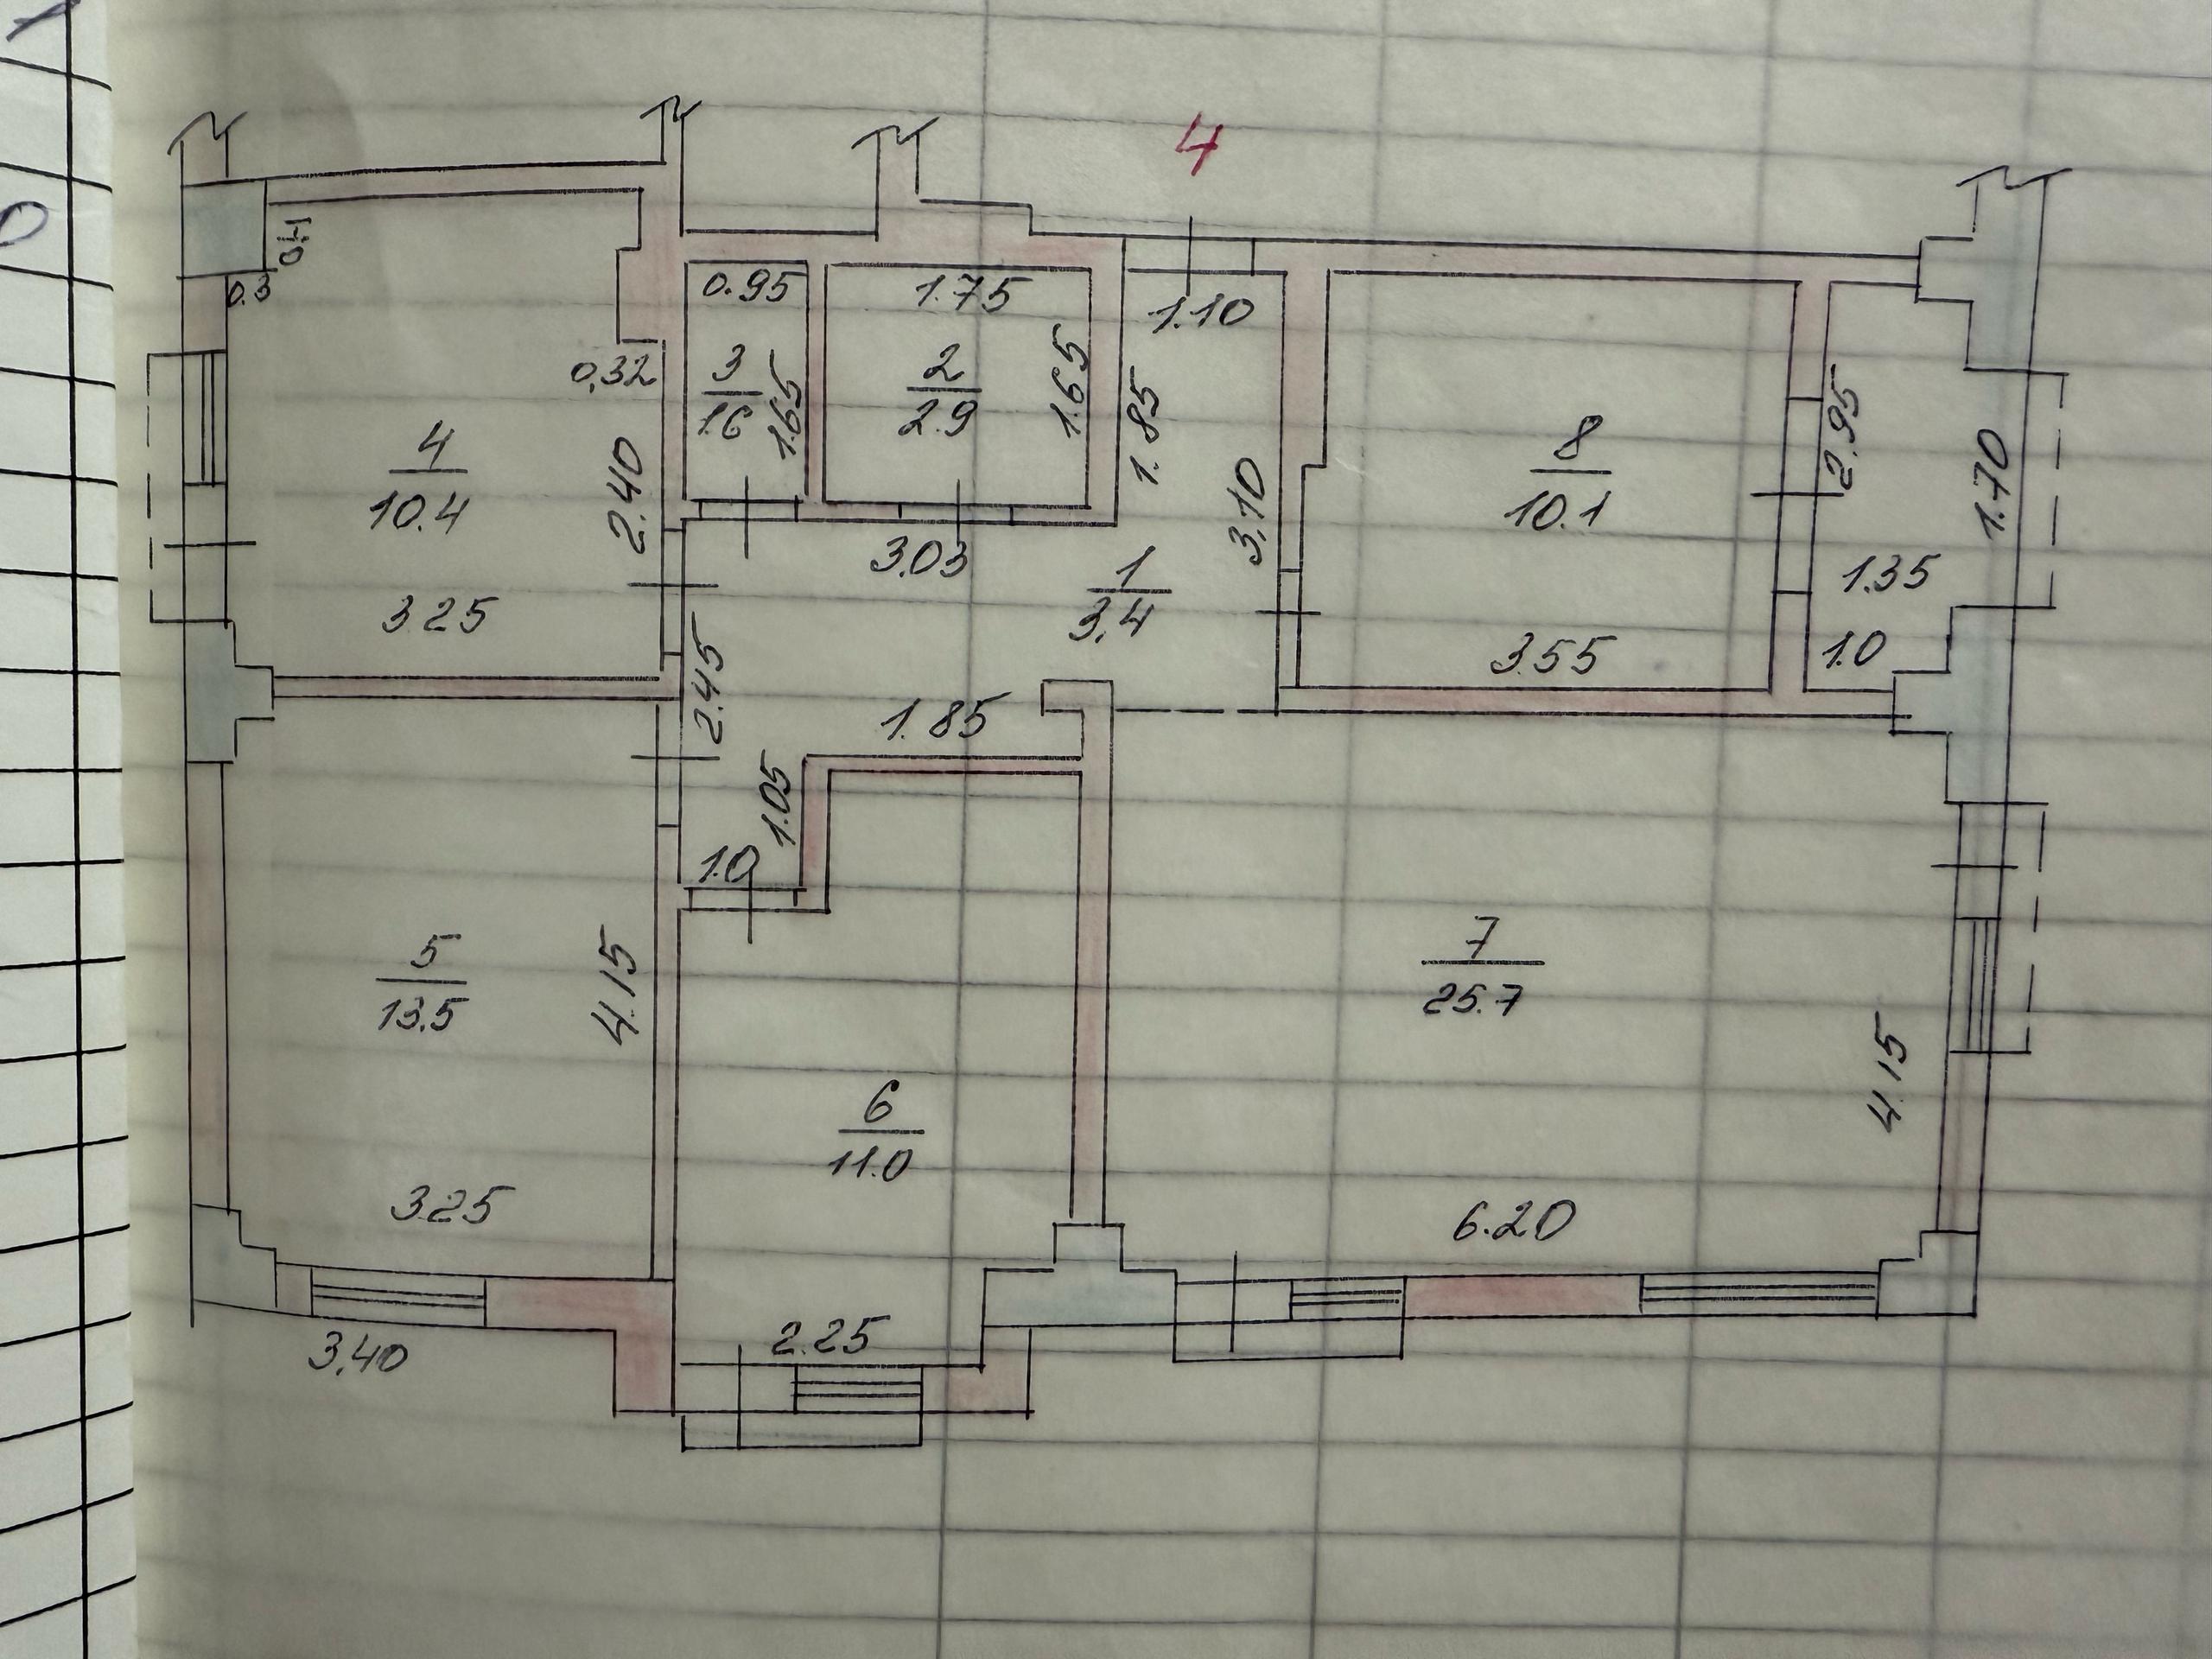 4
0.95
1.75
1.10
0.3
0,32
3
1.6
1.65
2
2.9
1.65
1.85
4
10.4
2.40
3.25
3.03
3.10
1
3.4
8
10.1
2.95
1.70
1.35
3.55
1.0
2.45
1.85
1.05
1.0
5
13.5
4.15
3.25
3.40
6
11.0
2.25
7
25.7
4.15
6.20